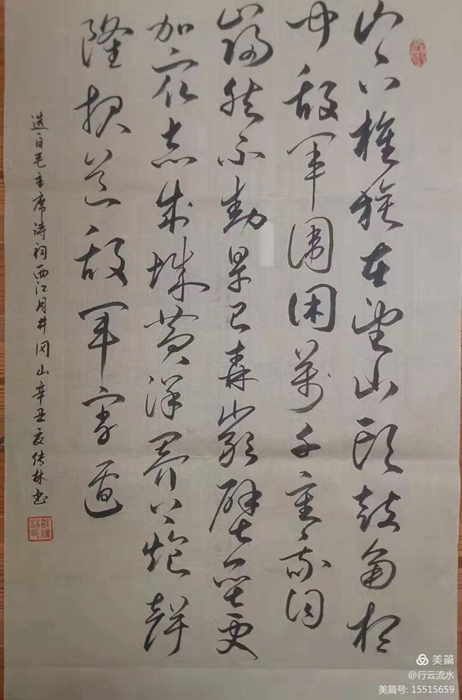 山下旌旗在望山头鼓角相
闻敌军围困万千重我自
岿然不动早已森严壁垒更
加众志成城黄洋界上炮声
隆报道敌军宵遁
选自毛主席诗词西江月井冈山辛丑夏林书
美篇
@行云流水
美篇号: 15515659